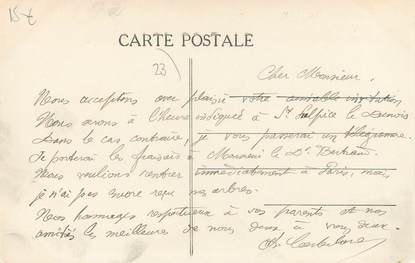 15 t
CARTE POSTALE
23
Cher Monsieur,
Nous acceptons avec plaisir votre aimable invitation
Nous serons à l'heure indiquée à St Sulpice le Dunois
Dans le cas contraire, je vous passerai un télégramme.
Je porterai les fraisiers à Monsieur le Dr Bertrand.
Nous voulions rentrer immédiatement à Paris, mais
je n'ai pas encore reçu nos arbres.
Nos hommages respectueux à vos parents et nos
amitiés les meilleures de nous deux à vous deux.